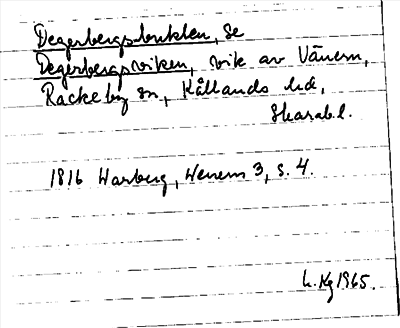 Degerbergsbukten, se
Degerbergsviken, vik av Vänern,
Rackeby sn, Kållands hd,
Skarab. l.
1816 Warberg, Wenern 3, s. 4.
L. Kg 1965.